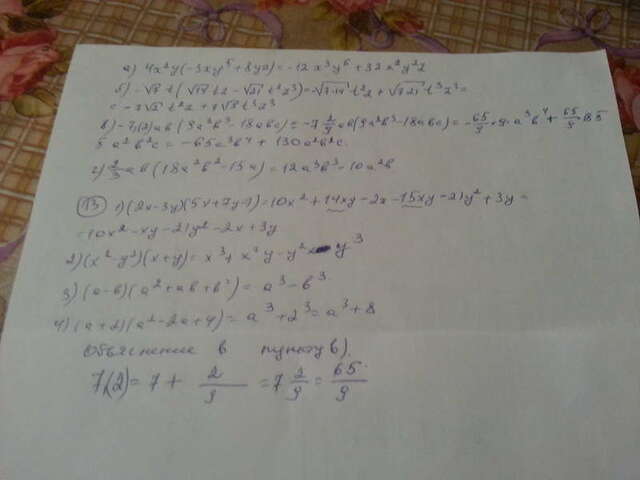 а) 4x²y(-3xy⁵+8yz)=-12x³y⁶+32x²y²z
б) -√7 t(√14 tz-√21 t²z³)=-√7·14 t²z+√7·21 t³z³=
= -7√2 t²z+7√3 t³z³
в) -7,(2)ab(9a²b³-18abc)=-7 2/9 ab(9a²b³-18abc)=-65/9·9·a³b⁴+65/9·18
a²b²c=-65a³b⁴+130a²b²c.
г) 2/3 ab(18a²b²-15a)=12a³b³-10a²b
13 1) (2x-3y)(5x+7y-1)=10x²+14xy-2x-15xy-21y²+3y=
=10x²-xy-21y²-2x+3y
2) (x²-y²)(x+y)=x³+x²y-y²x-y³
3) (a-b)(a²+ab+b²)=a³-b³.
4) (a+2)(a²-2a+4)=a³+2³=a³+8
Объяснение в пункту в).
7,(2)=7+2/9=7 2/9=65/9